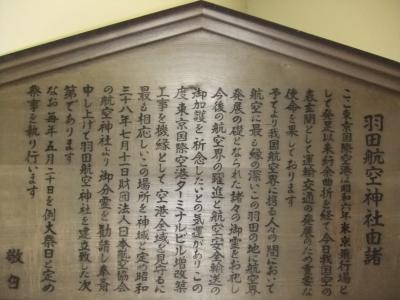 羽田航空神社由緒
ここ東京国際空港は昭和六年東京飛行場と
して発足以来紆余曲折を経て今日我国空の
表玄関として運輸交通の発展のため重要な
使命を果しております
予てより我国航空界に携る人々の間において
航空に最も縁の深いこの羽田の地に航空界
発展の礎となられた諸々の御霊をお祀し
今後の航空界の躍進と航空安全輸送の
御加護を祈念したいとの気運がありこの
度東京国際空港ターミナルビル増改築
工事を機縁として空港全域を見守るに
最も相応しいこの場所を神域と定め昭和
三十八年七月十一日財団法人日本航空協会
の航空神社より御分霊を勧請し奉斎
申し上げて羽田航空神社を建立致した次
第であります
なお毎年五月二十日を例大祭日と定め
祭事を執り行います
敬白